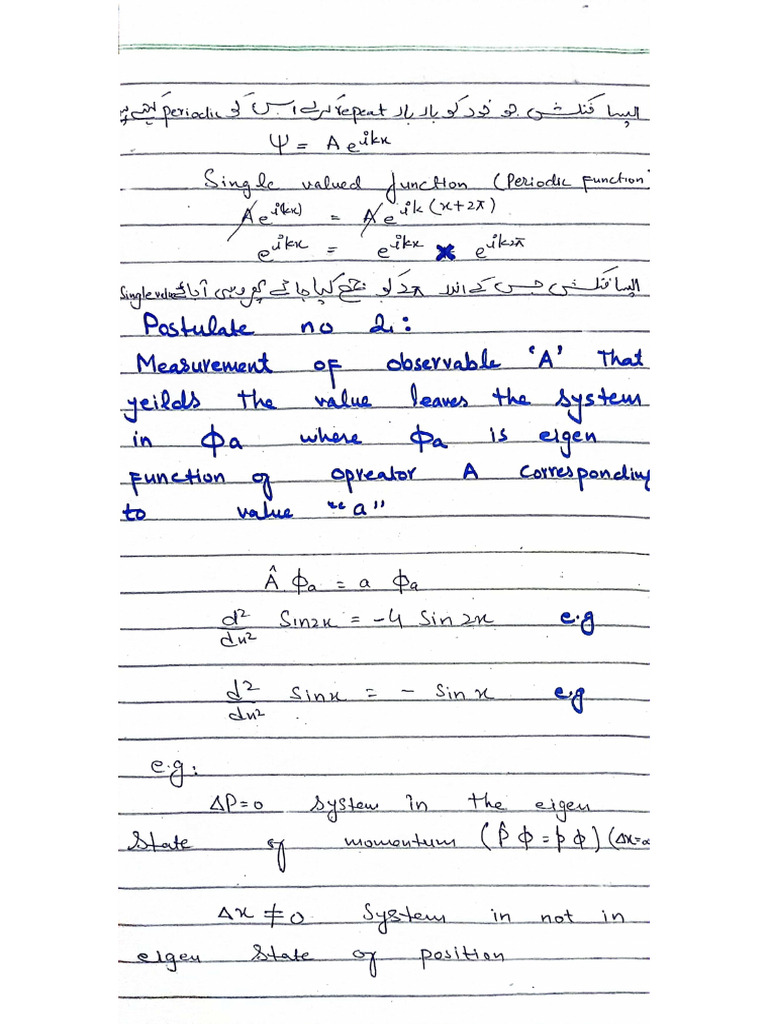 ایسا فنکشن جو خود کو بار بار repeat کرے اس کو periodic کہتے ہیں
Ψ = A e^{ikx}
Single valued function (Periodic Function
A e^{i(kx)} = A e^{ik(x+2π)}
e^{ikx} = e^{ikx} × e^{ik2π}
ایسا فنکشن جس کے اندر 2π کو جمع کیا جائے پھر وہی آ جائے Single value
Postulate no 2:
Measurement of observable 'A' That
yeilds the value leaves the system
in Φa where Φa is eigen
function of opreator A corresponding
to value "a"
Â Φa = a Φa
d²/dx² Sin2x = -4 Sin 2x e.g
d²/dx² Sinx = - Sin x e.g
e.g:
ΔP=0 system in the eigen
State of momentum (P̂ Φ = p Φ) (Δx=∞
Δx ≠ 0 System in not in
eigen State of position